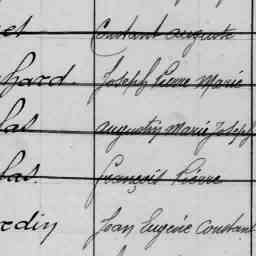 et Constant Auguste
hard Joseph Pierre Marie
las Augustin Marie Joseph
las. François Pierre
rdin Jean Eugène Constant